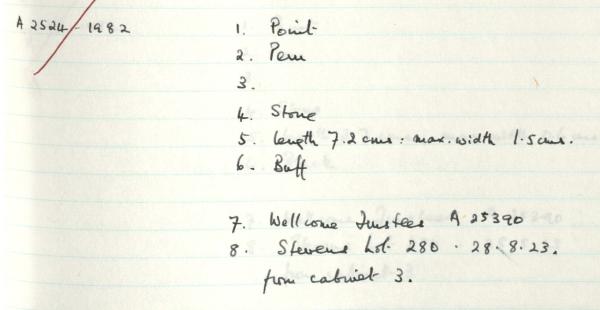 A 2524 - 1982
1. Point
2. Peru
3.
4. Stone
5. length 7.2 cms : max. width 1.5 cms.
6. Buff
7. Wellcome Trustees A 25390
8. Stevens Lot 280 . 28.8.23.
from cabinet 3.